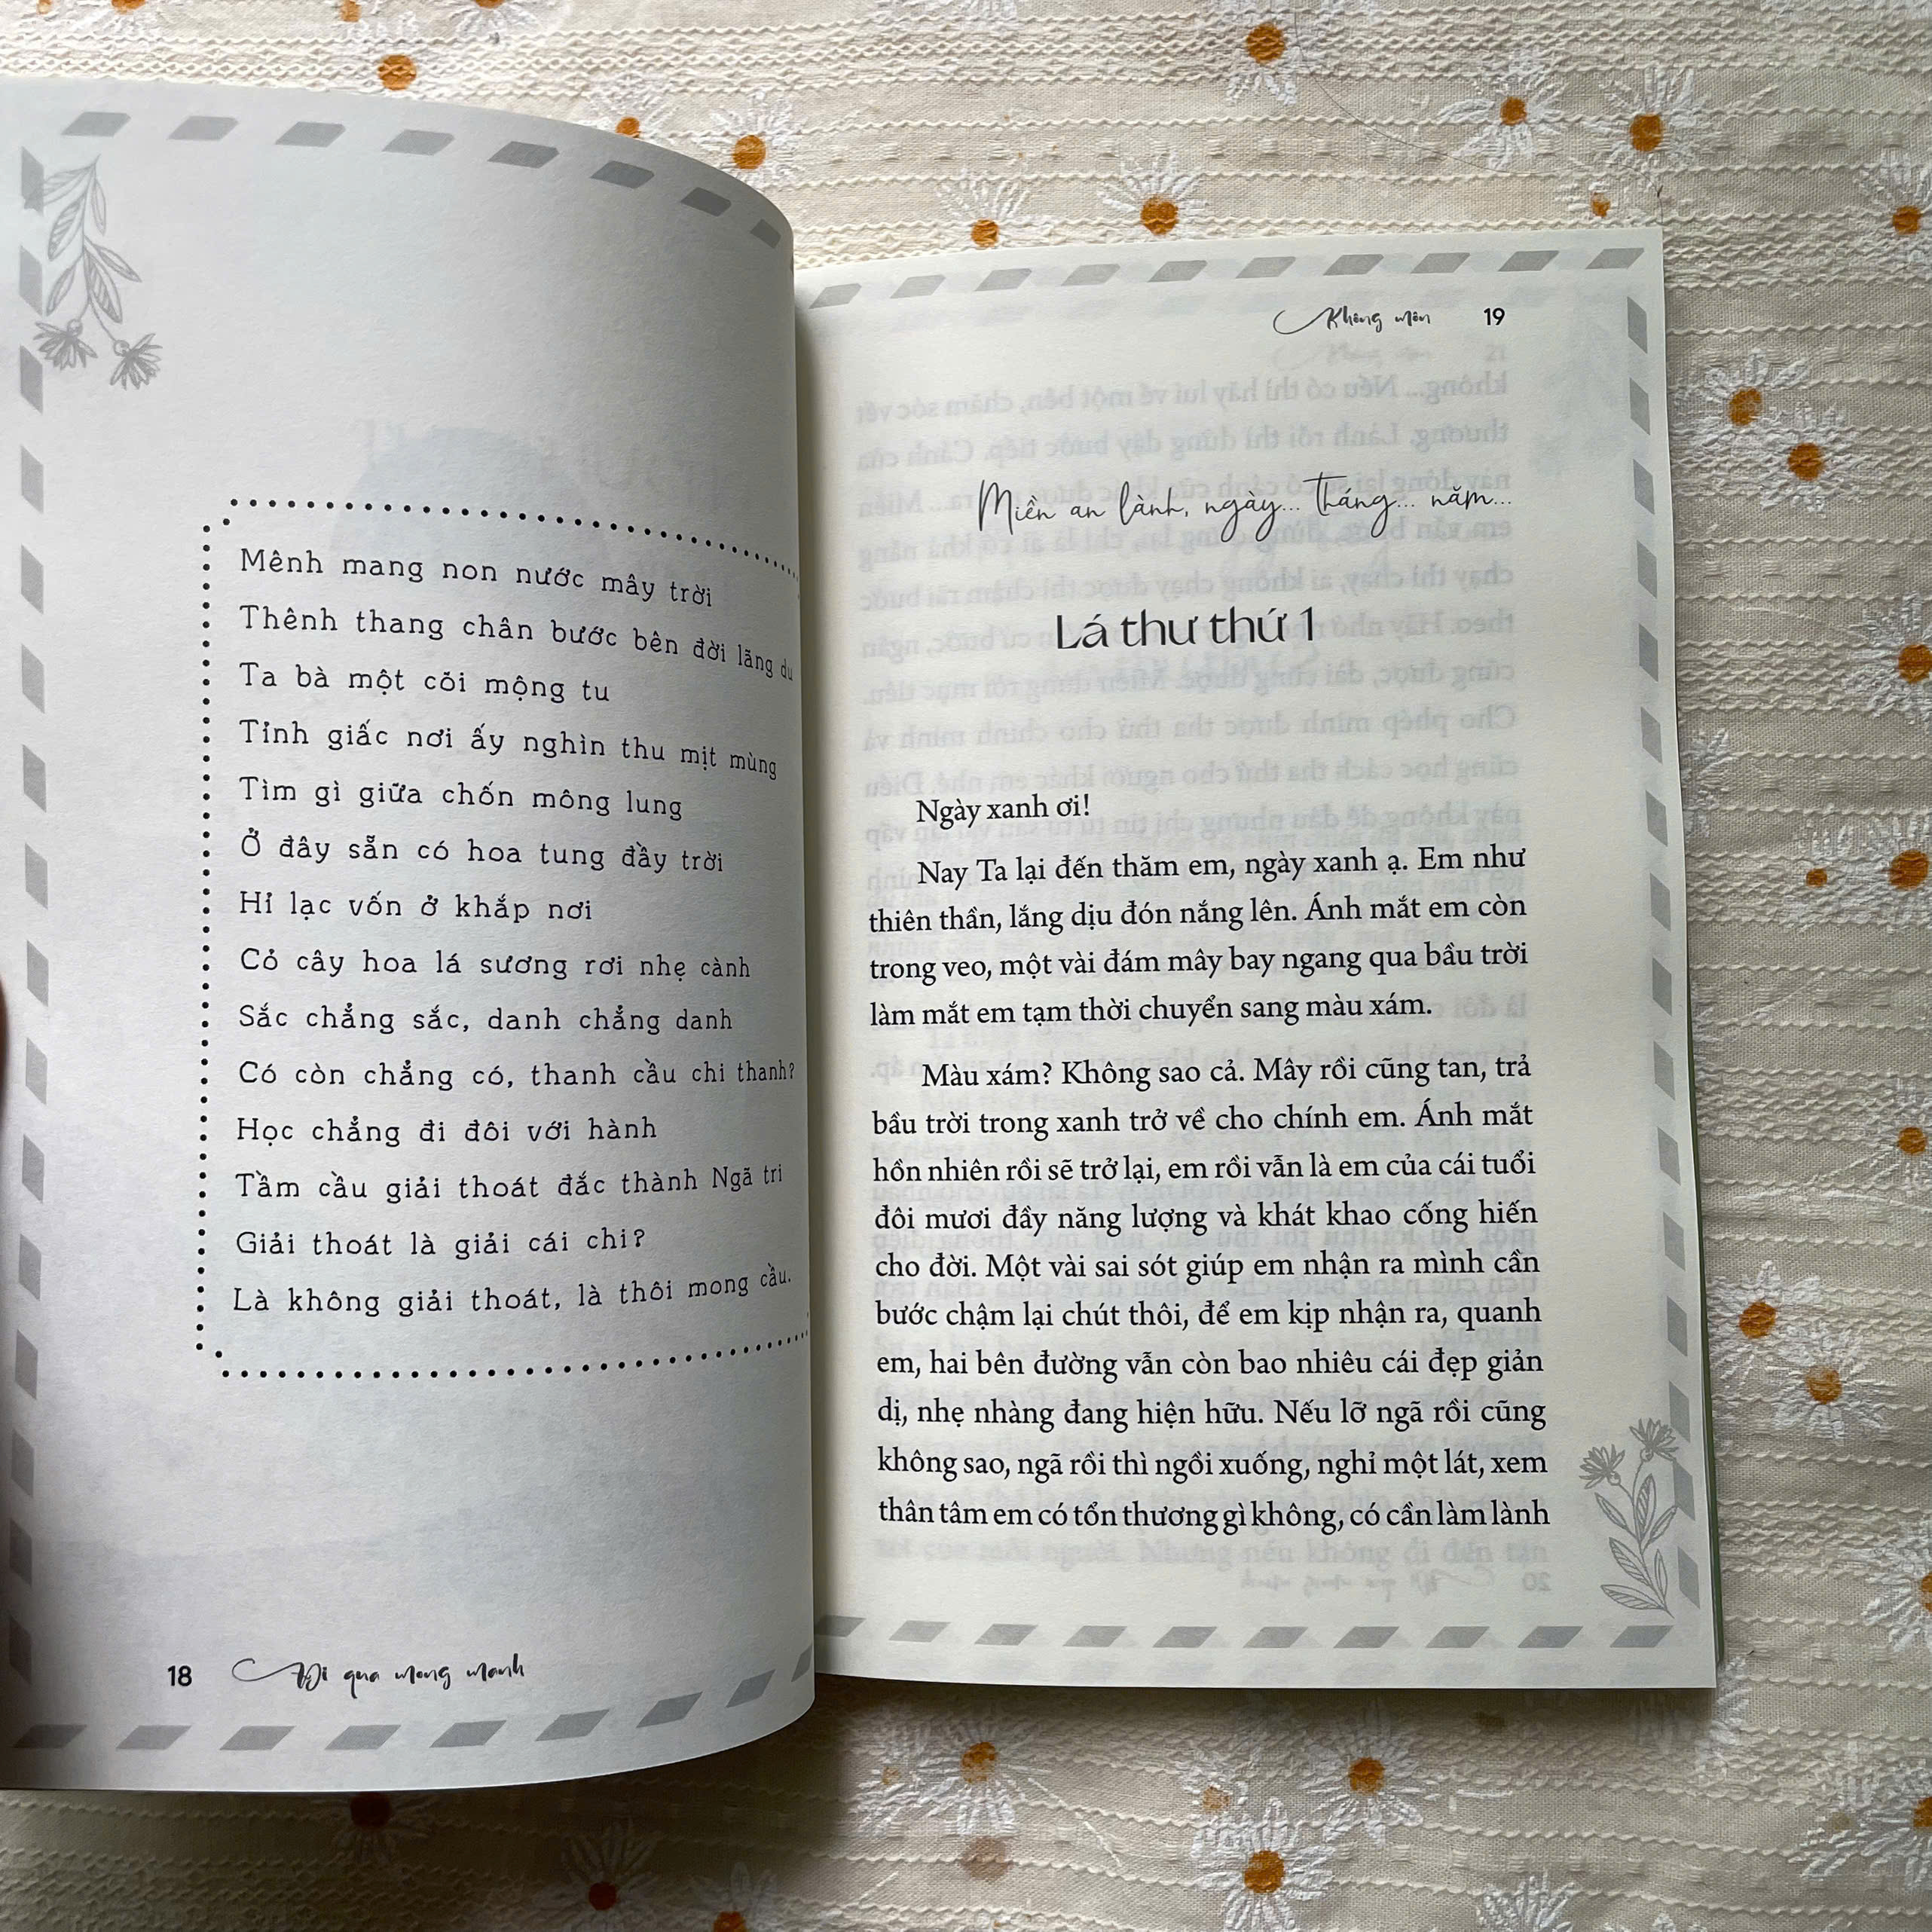 Mênh mang non nước mây trời
Thênh thang chân bước bên đời lãng du
Ta bà một cõi mộng tu
Tỉnh giấc nơi ấy nghìn thu mịt mùng
Tìm gì giữa chốn mông lung
Ở đây sẵn có hoa tung đầy trời
Hỉ lạc vốn ở khắp nơi
Cỏ cây hoa lá sương rơi nhẹ cành
Sắc chẳng sắc, danh chẳng danh
Có còn chẳng có, thanh cầu chi thanh?
Học chẳng đi đôi với hành
Tầm cầu giải thoát đắc thành Ngã tri
Giải thoát là giải cái chi?
Là không giải thoát, là thôi mong cầu.
18 Đi qua mong manh
Không môn 19
Miền an lành, ngày... tháng... năm...
Lá thư thứ 1
Ngày xanh ơi!
Nay Ta lại đến thăm em, ngày xanh ạ. Em như
thiên thần, lắng dịu đón nắng lên. Ánh mắt em còn
trong veo, một vài đám mây bay ngang qua bầu trời
làm mắt em tạm thời chuyển sang màu xám.
Màu xám? Không sao cả. Mây rồi cũng tan, trả
bầu trời trong xanh trở về cho chính em. Ánh mắt
hồn nhiên rồi sẽ trở lại, em rồi vẫn là em của cái tuổi
đôi mươi đầy năng lượng và khát khao cống hiến
cho đời. Một vài sai sót giúp em nhận ra mình cần
bước chậm lại chút thôi, để em kịp nhận ra, quanh
em, hai bên đường vẫn còn bao nhiêu cái đẹp giản
dị, nhẹ nhàng đang hiện hữu. Nếu lỡ ngã rồi cũng
không sao, ngã rồi thì ngồi xuống, nghỉ một lát, xem
thân tâm em có tổn thương gì không, có cần làm lành